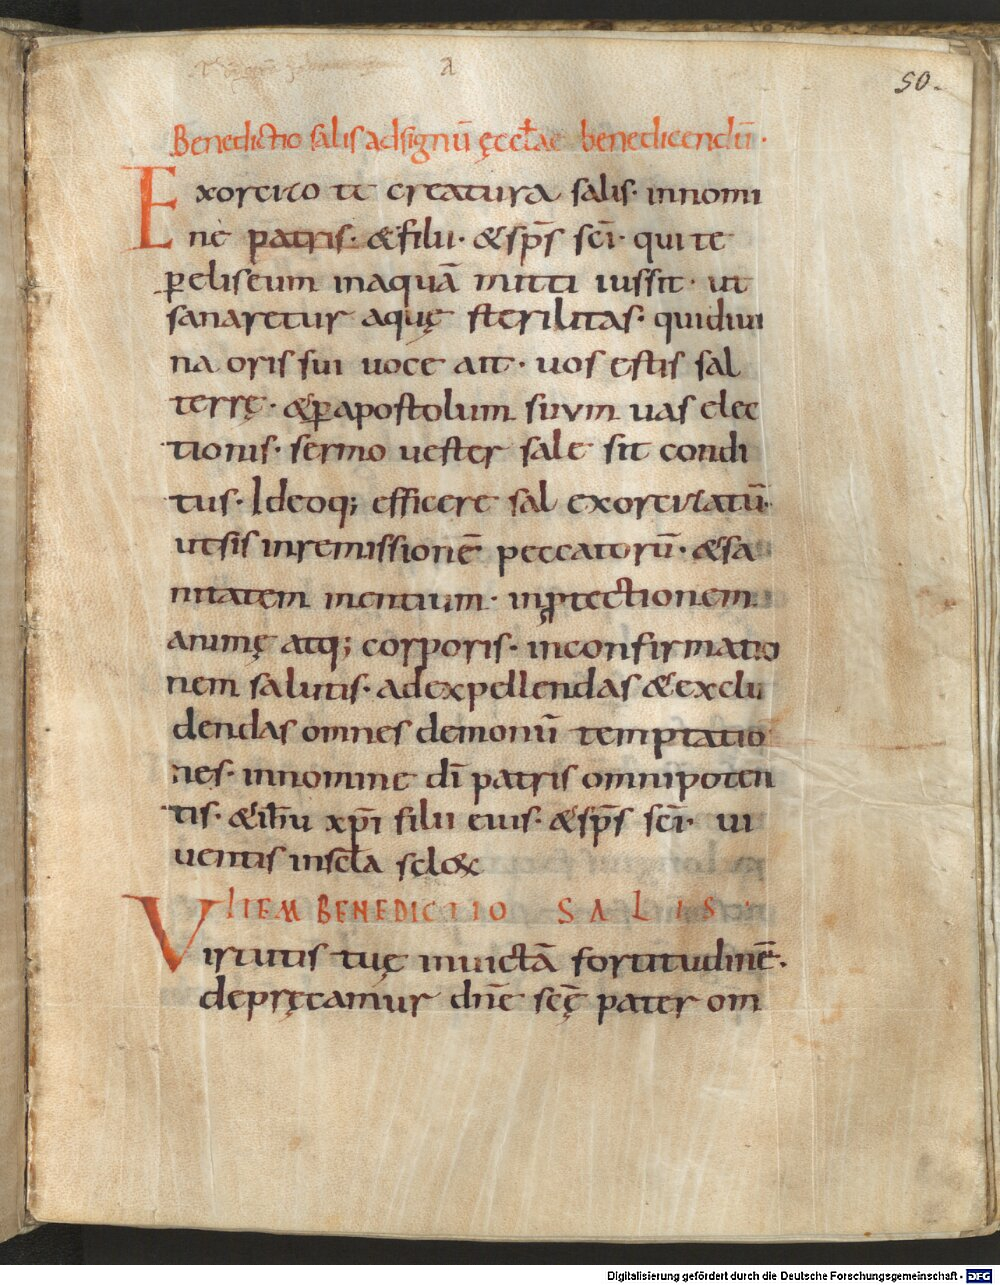 a
50.
Benedictio salis ad signū ęccłae benedicendū·
Exorcizo te creatura salis· innomi
ne patris· &filii· &sp̄s sc̄i· qui te
ꝑeliseum inaquā mitti iussit· ut
sanaretur aquę sterilitas· quidiui
na oris sui uoce ait· uos estis sal
terrę· &ꝑapostolum suum uas elec
tionis· sermo uester sale sit condi
tus· Ideoq; efficere sal exorcizatū·
utsis inremissionē peccatorū· &sa
nitatem mentium· inꝓtectionem
animę atq; corporis· inconfirmatio
nem salutis· adexpellendas &exclu
dendas omnes demonū temptatio
nes· innomine dī patris omnipoten
tis· &ih̄u xp̄i filii eius· &sp̄s sc̄i· ui
uentis insc̄la sclox
ITEM BENEDICTIO SALIS·
Virtutis tuę inuictā fortitudinē·
depręcamur dn̄e sc̄ę pater om
Digitalisierung gefördert durch die Deutsche Forschungsgemeinschaft - DFG